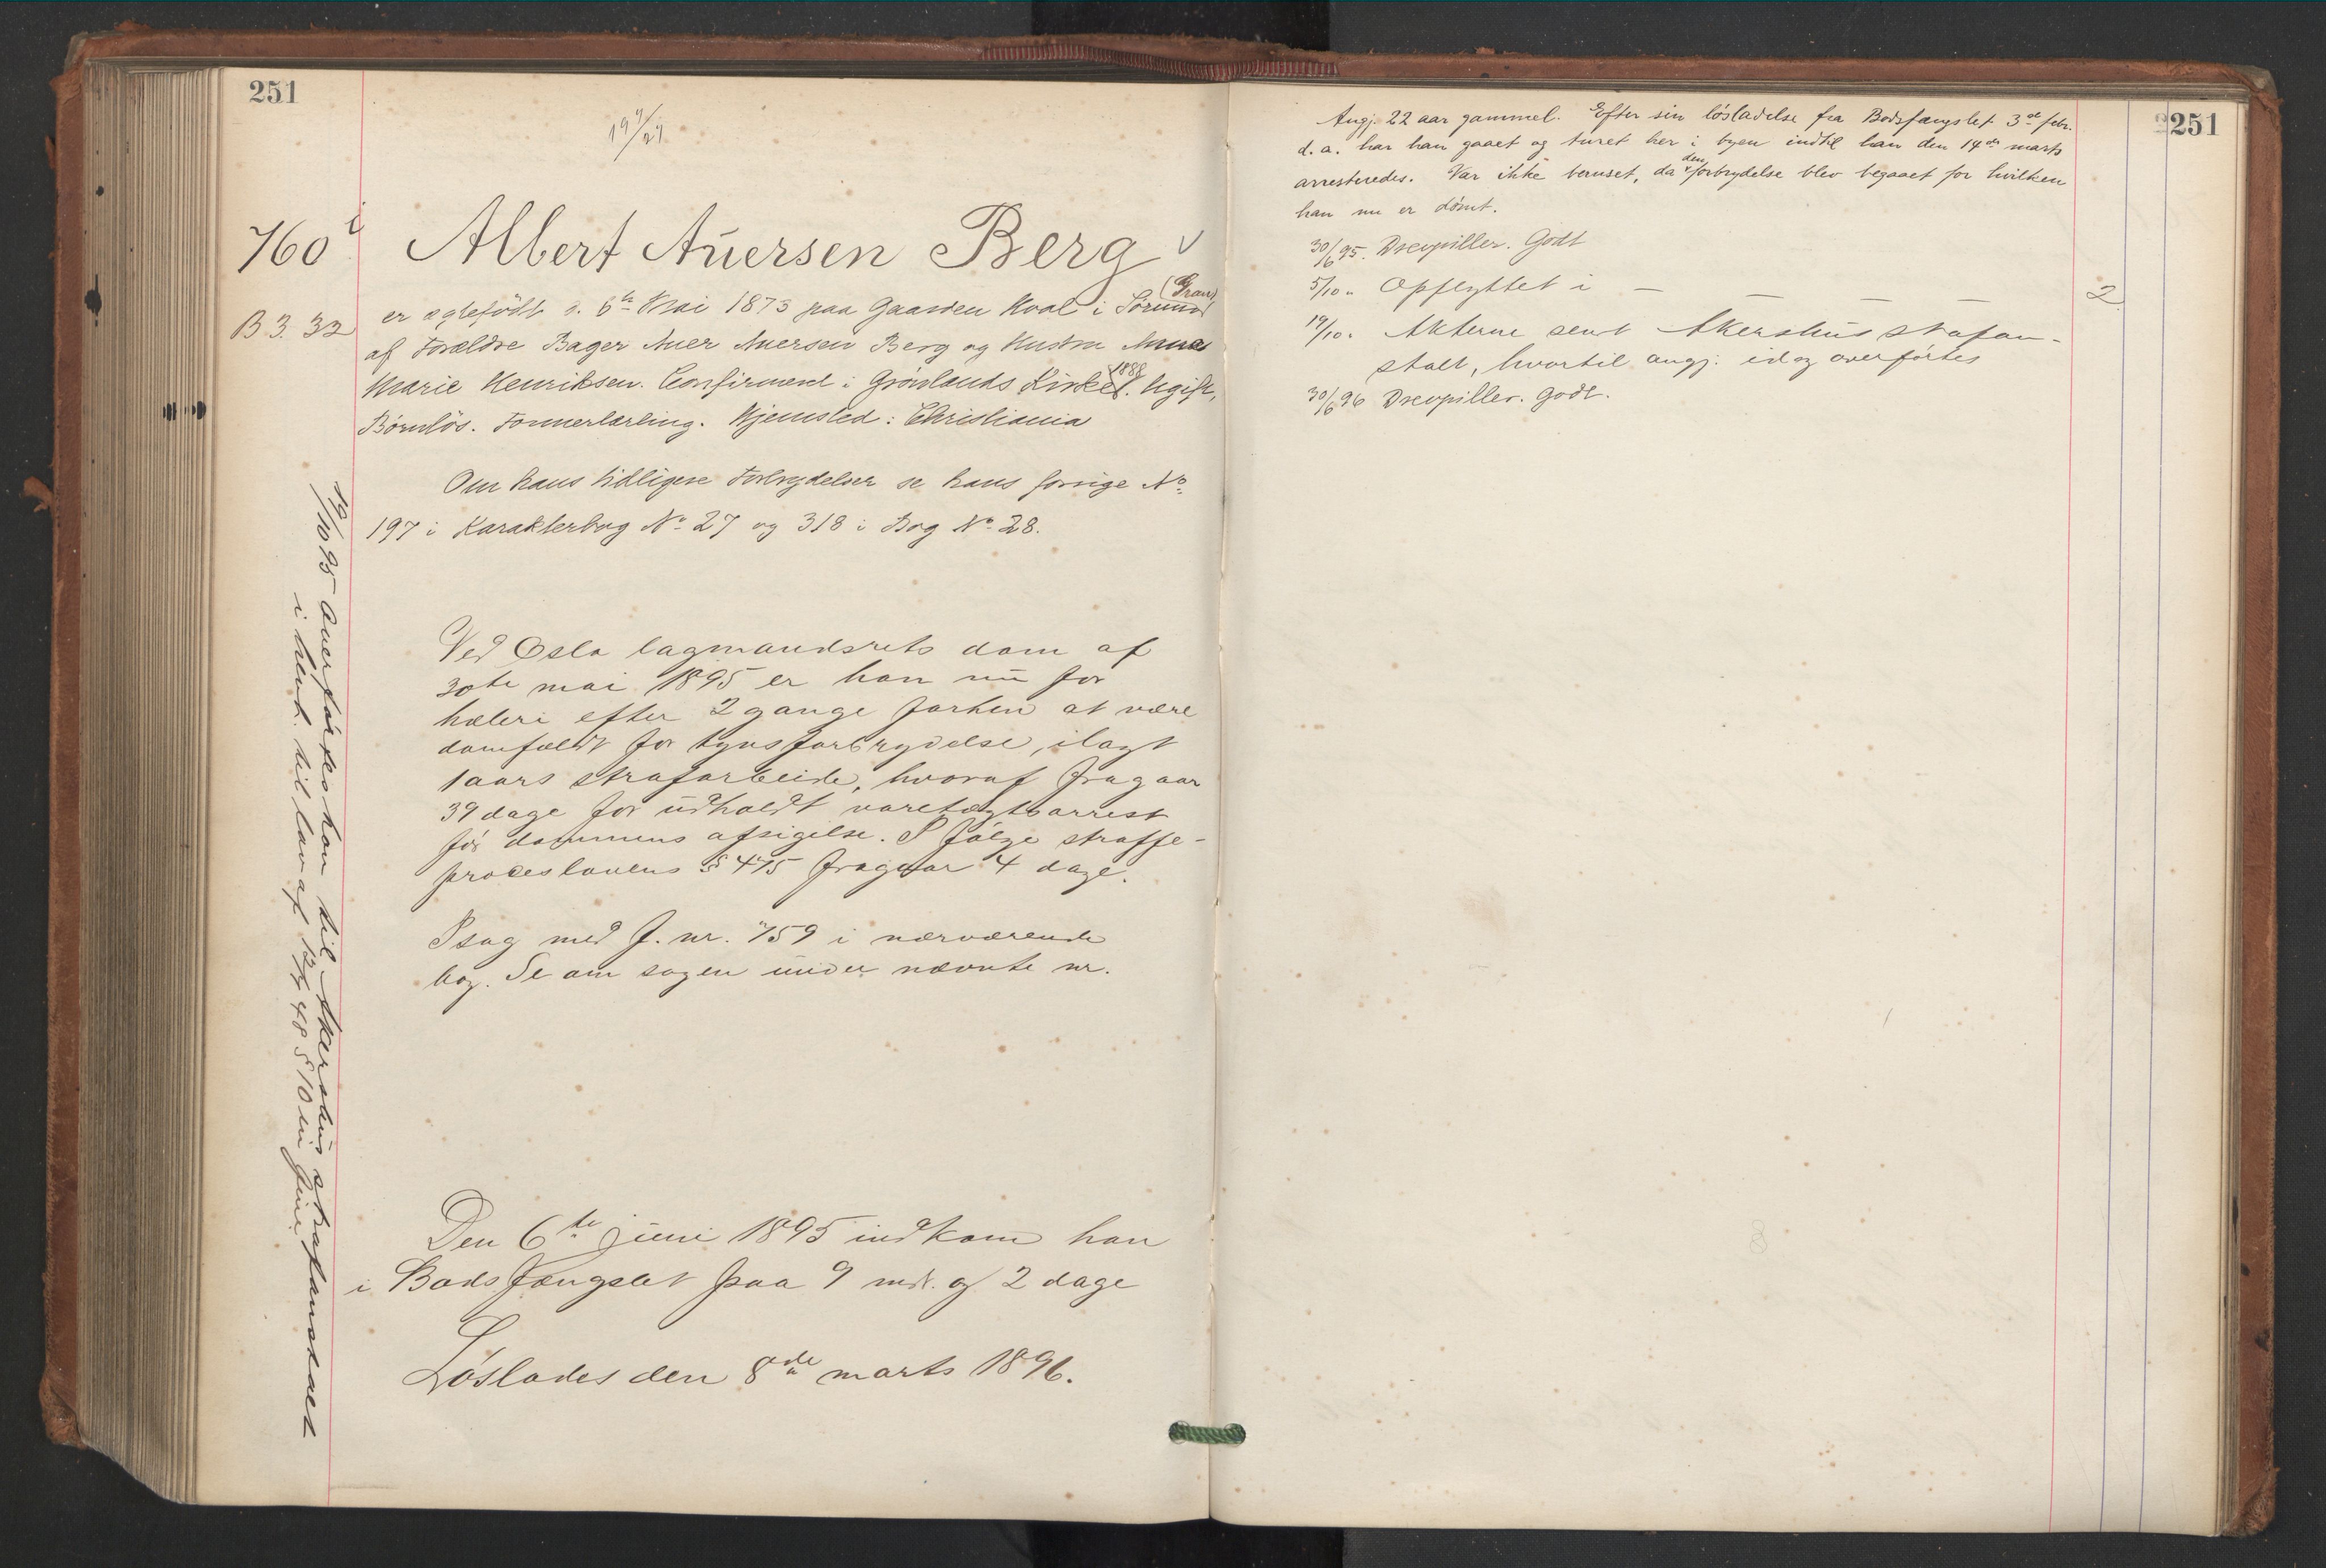 251
197/27
760 i
Albert Auersen Berg
B 3. 32
(Gran)
er ægtefødt d. 6te Mai 1873 paa Gaarden Hval i Sørum
af Forældre Bager Auer Auersen Berg og Hustru Anne
Marie Henriksen. Confirmered i Grønlands Kirke 1888. Ugift,
Børnløs. Formerlærling. Hjemsted: Christiania
Om hans tidligere Forbrydelser se hans forrige No
197 i Karakterbog No 27 og 318 i Bog No 28.
Ved Oslo lagmandsrets dom af
30te mai 1895 er han nu for
hæleri efter 2 gange forhen at være
domfældt for tyvsforbrydelse, ilagt
1 aars strafarbeide, hvoraf fragaar
39 dage for udholdt varetægtsarrest
før dommens afsigelse. I følge straffe-
proceslovens § 475 fragaar 4 dage.
I sag med f. nr. 759 i nærværende
bog. Se om sagen under nævnte nr.
Den 6te juni 1895 indkom han
i Bodsfængslet paa 9 mdr. og 2 dage
Løslades den 8de marts 1896.
19/10 95 Overførtes han til Akershus strafanstalt
i henh. til lov af 48 § 10 in fine.
251
Angj. 22 aar gammel. Efter sin løsladelse fra Bodsfængslet 3de febr.
d. a. har han gaaet og turet her i byen indtil han den 14de marts
arresteredes. Var ikke beruset, da den forbrydelse blev begaaet for hvilken
han nu er dømt.
30/6 95. Drevpiller. Godt
5/10 " Opflyttet i — — — — 2
19/10 " Akterne sent Akershus strafan-
stalt, hvortil angj. idag overførtes
30/6 96 Drevpiller. Godt.